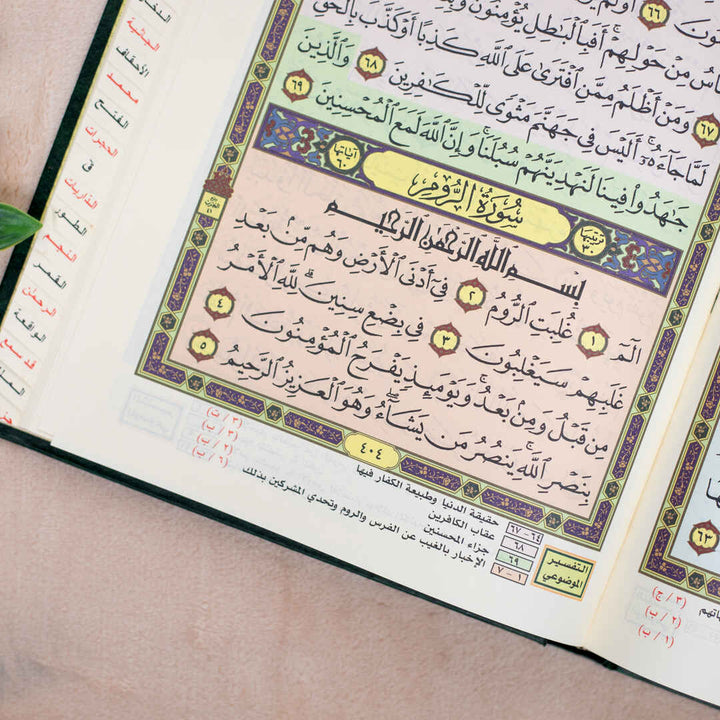 ٦٦
أَوَلَمْ
ٱلنَّاسُ مِنْ حَوْلِهِمْ ۚ أَفَبِٱلْبَٰطِلِ يُؤْمِنُونَ
٦٧
وَمَنْ أَظْلَمُ مِمَّنِ ٱفْتَرَىٰ عَلَى ٱللَّهِ كَذِبًا أَوْ كَذَّبَ بِٱلْحَقِّ
لَمَّا جَآءَهُۥٓ ۚ أَلَيْسَ فِى جَهَنَّمَ مَثْوًى لِّلْكَٰفِرِينَ ٦٨ وَٱلَّذِينَ
جَٰهَدُوا۟ فِينَا لَنَهْدِيَنَّهُمْ سُبُلَنَا ۚ وَإِنَّ ٱللَّهَ لَمَعَ ٱلْمُحْسِنِينَ ٦٩
ترتيبها ٣٠ سُورَةُ الرُّومِ آياتها ٦٠
بِسْمِ ٱللَّهِ ٱلرَّحْمَٰنِ ٱلرَّحِيمِ
الٓمٓ ١ غُلِبَتِ ٱلرُّومُ ٢ فِىٓ أَدْنَى ٱلْأَرْضِ وَهُم مِّنۢ بَعْدِ
غَلَبِهِمْ سَيَغْلِبُونَ ٣ فِى بِضْعِ سِنِينَ ۗ لِلَّهِ ٱلْأَمْرُ
مِن قَبْلُ وَمِنۢ بَعْدُ ۚ وَيَوْمَئِذٍ يَفْرَحُ ٱلْمُؤْمِنُونَ ٤
بِنَصْرِ ٱللَّهِ ۚ يَنصُرُ مَن يَشَآءُ ۖ وَهُوَ ٱلْعَزِيزُ ٱلرَّحِيمُ ٥
٤٠٤
التفسير الموضوعي
٦٤ - ٦٧ حقيقة الدنيا وطبيعة الكفار فيها
٦٨ عقاب الكافرين
٦٩ جزاء المحسنين
١ - ٧ الإخبار بالغيب عن الفرس والروم وتحدي المشركين بذلك
الجاثية
الأحقاف
محمد
الفتح
الحجرات
ق
الذاريات
الطور
النجم
القمر
الرحمن
الواقعة
قد سمع
٦٣